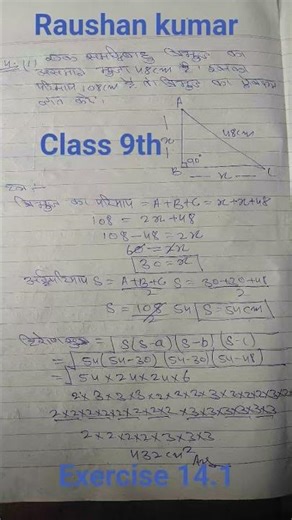 Raushan kumar
एक समद्विबाहु त्रिभुज का
असमान भुजा 48cm है। इसका
परिमाप 108cm है तो त्रिभुज का क्षेत्रफल
ज्ञात करें।
A
48cm
x
Class 9th
90°
B
x
C
हल :-
त्रिभुज का परिमाप = A+B+C = x+x+48
108 = 2x+48
108-48 = 2x
60 = 2x
30 = x
अर्द्धपरिमाप S = A+B+C/2 S = 30+30+48/2
S = 108/2 54 S = 54cm
= √S(S-a)(S-b)(S-c)
= √54(54-30)(54-30)(54-48)
= √54×24×24×6
2×2×2×2×3×3×3
432cm² Ans
Exercise 14.1